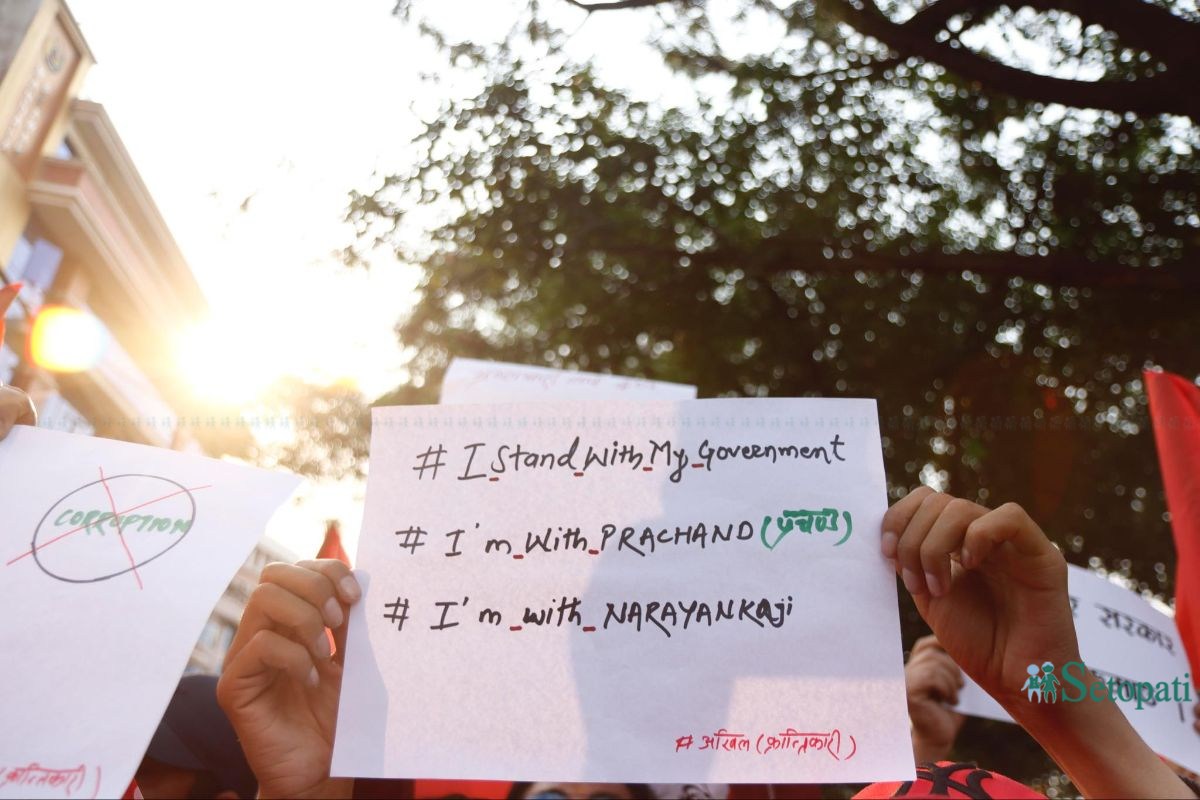 CORRUPTION
(क्रान्तिकारी)
# I_Stand_With_My_Government
# I'm_With_PRACHAND (प्रचण्ड)
# I'm_with_NARAYANKaji
# अखिल (क्रान्तिकारी)
सरकार
Setopati